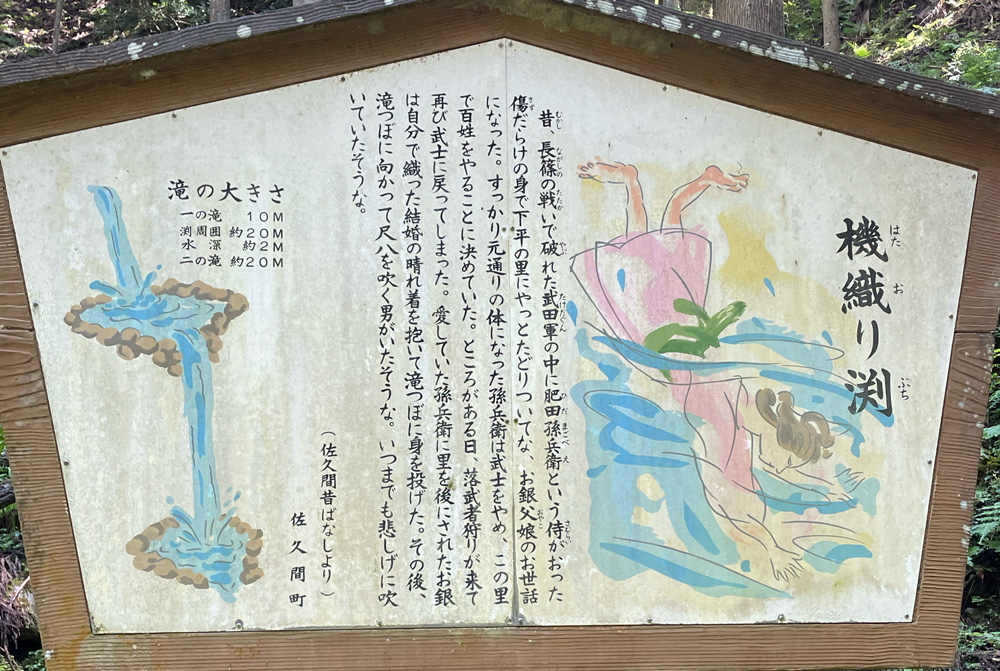 機織り渕
はた お ぶち
昔、長篠の戦いで破れた武田軍の中に肥田孫兵衛という侍がおった
むかし ながしの たたか やぶ たけだぐん ひだ まごべえ さむらい
傷だらけの身で下平の里にやっとたどりついてな、お銀父娘のお世話
きず おやこ
になった。すっかり元通りの体になった孫兵衛は武士をやめ、この里
で百姓をやることに決めていた。ところがある日、落武者狩りが来て
再び武士に戻ってしまった。愛していた孫兵衛に里を後にされたお銀
は自分で織った結婚の晴れ着を抱いて滝つぼに身を投げた。その後、
滝つぼに向かって尺八を吹く男がいたそうな。いつまでも悲しげに吹
いていたそうな。
(佐久間昔ばなしより)
佐久間町
滝の大きさ
一の滝 10M
渕周囲 約20M
水深 約2M
二の滝 約20M